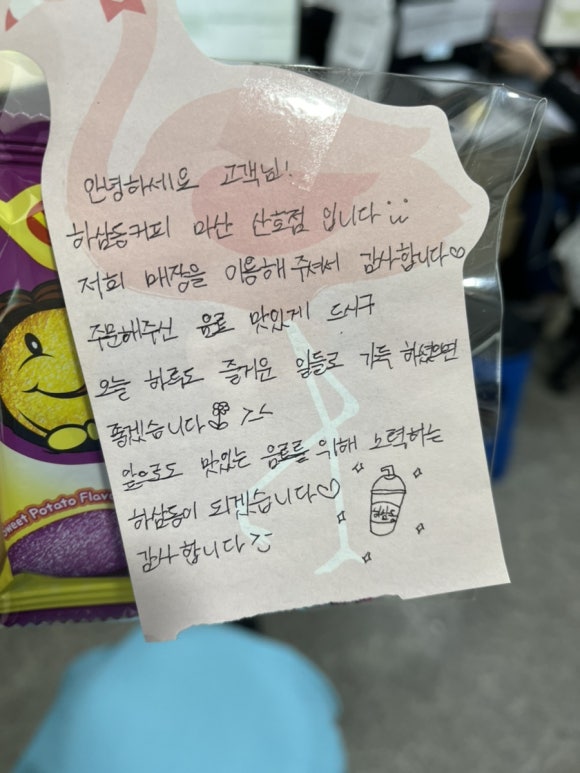 안녕하세요 고객님!
하삼동커피 마산 산호점 입니다
저희 매장을 이용해 주셔서 감사합니다♡
주문해주신 음료 맛있게 드시구
오늘 하루도 즐거운 일들로 가득 하셨으면
좋겠습니다 >.<
앞으로도 맛있는 음료를 위해 노력하는
하삼동이 되겠습니다♡
감사합니다
하삼동
Sweet Potato Flav